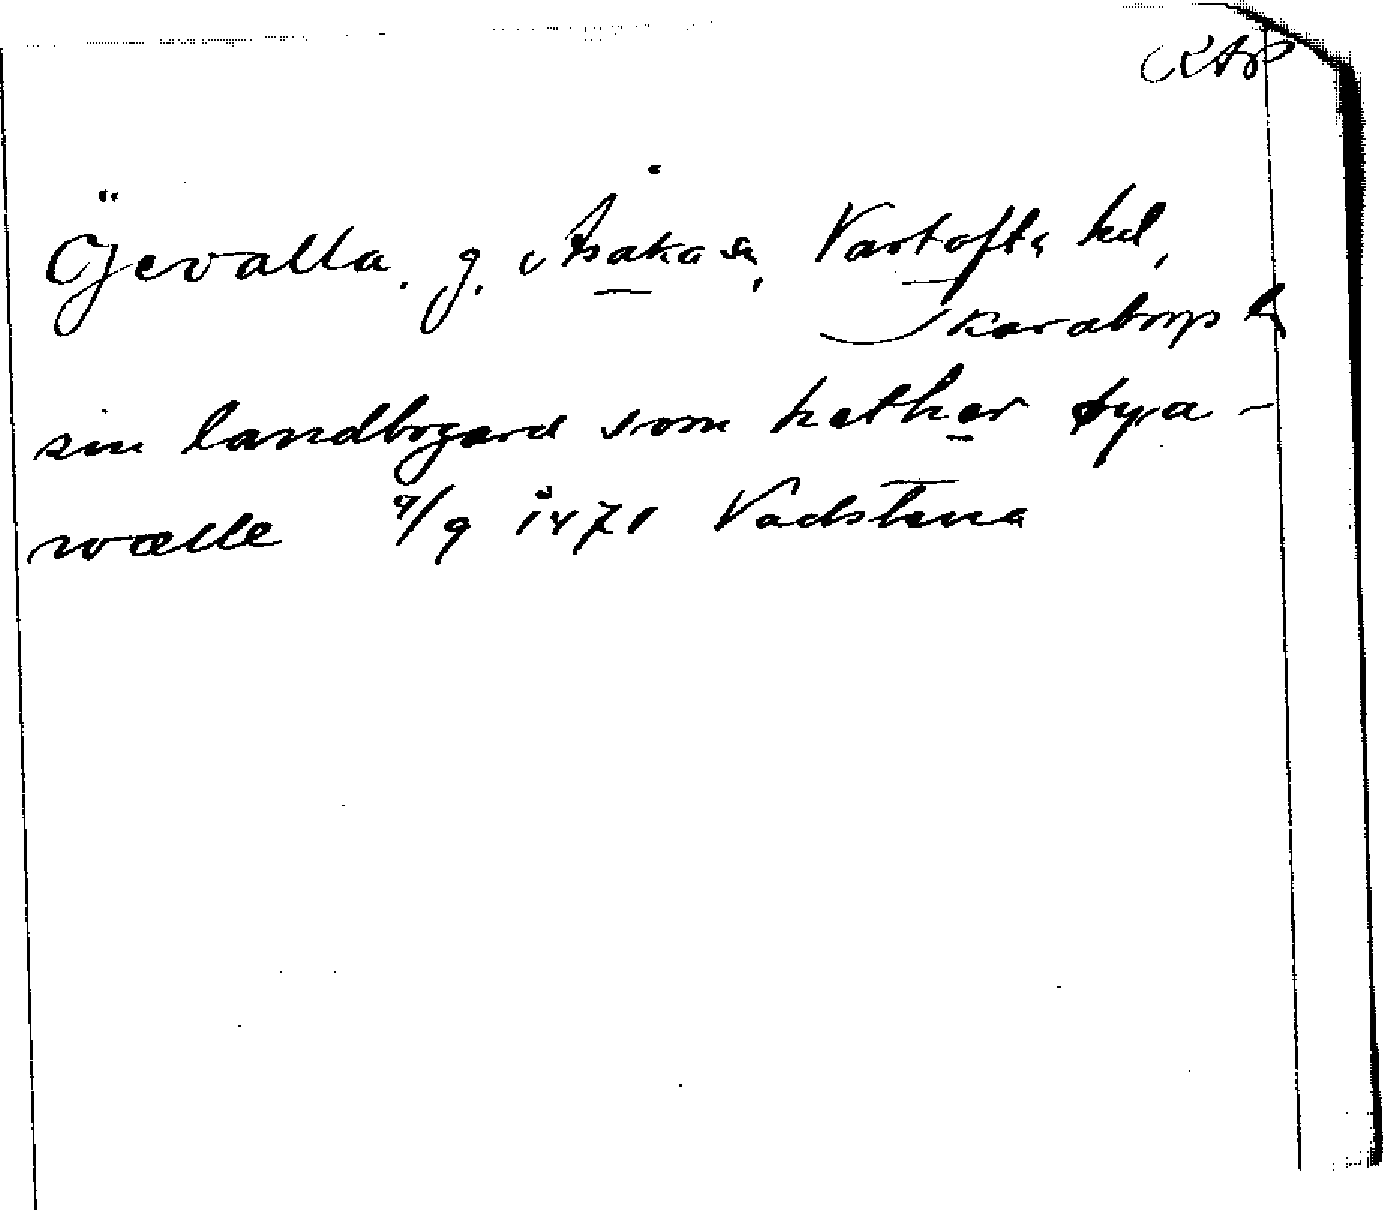 RAP
Öjevalla. g. Åsaka sn, Vartofta hd,
Skaraborgs l.
sin landbogard som hether øya-
wælle 7/9 1471 Vadstena